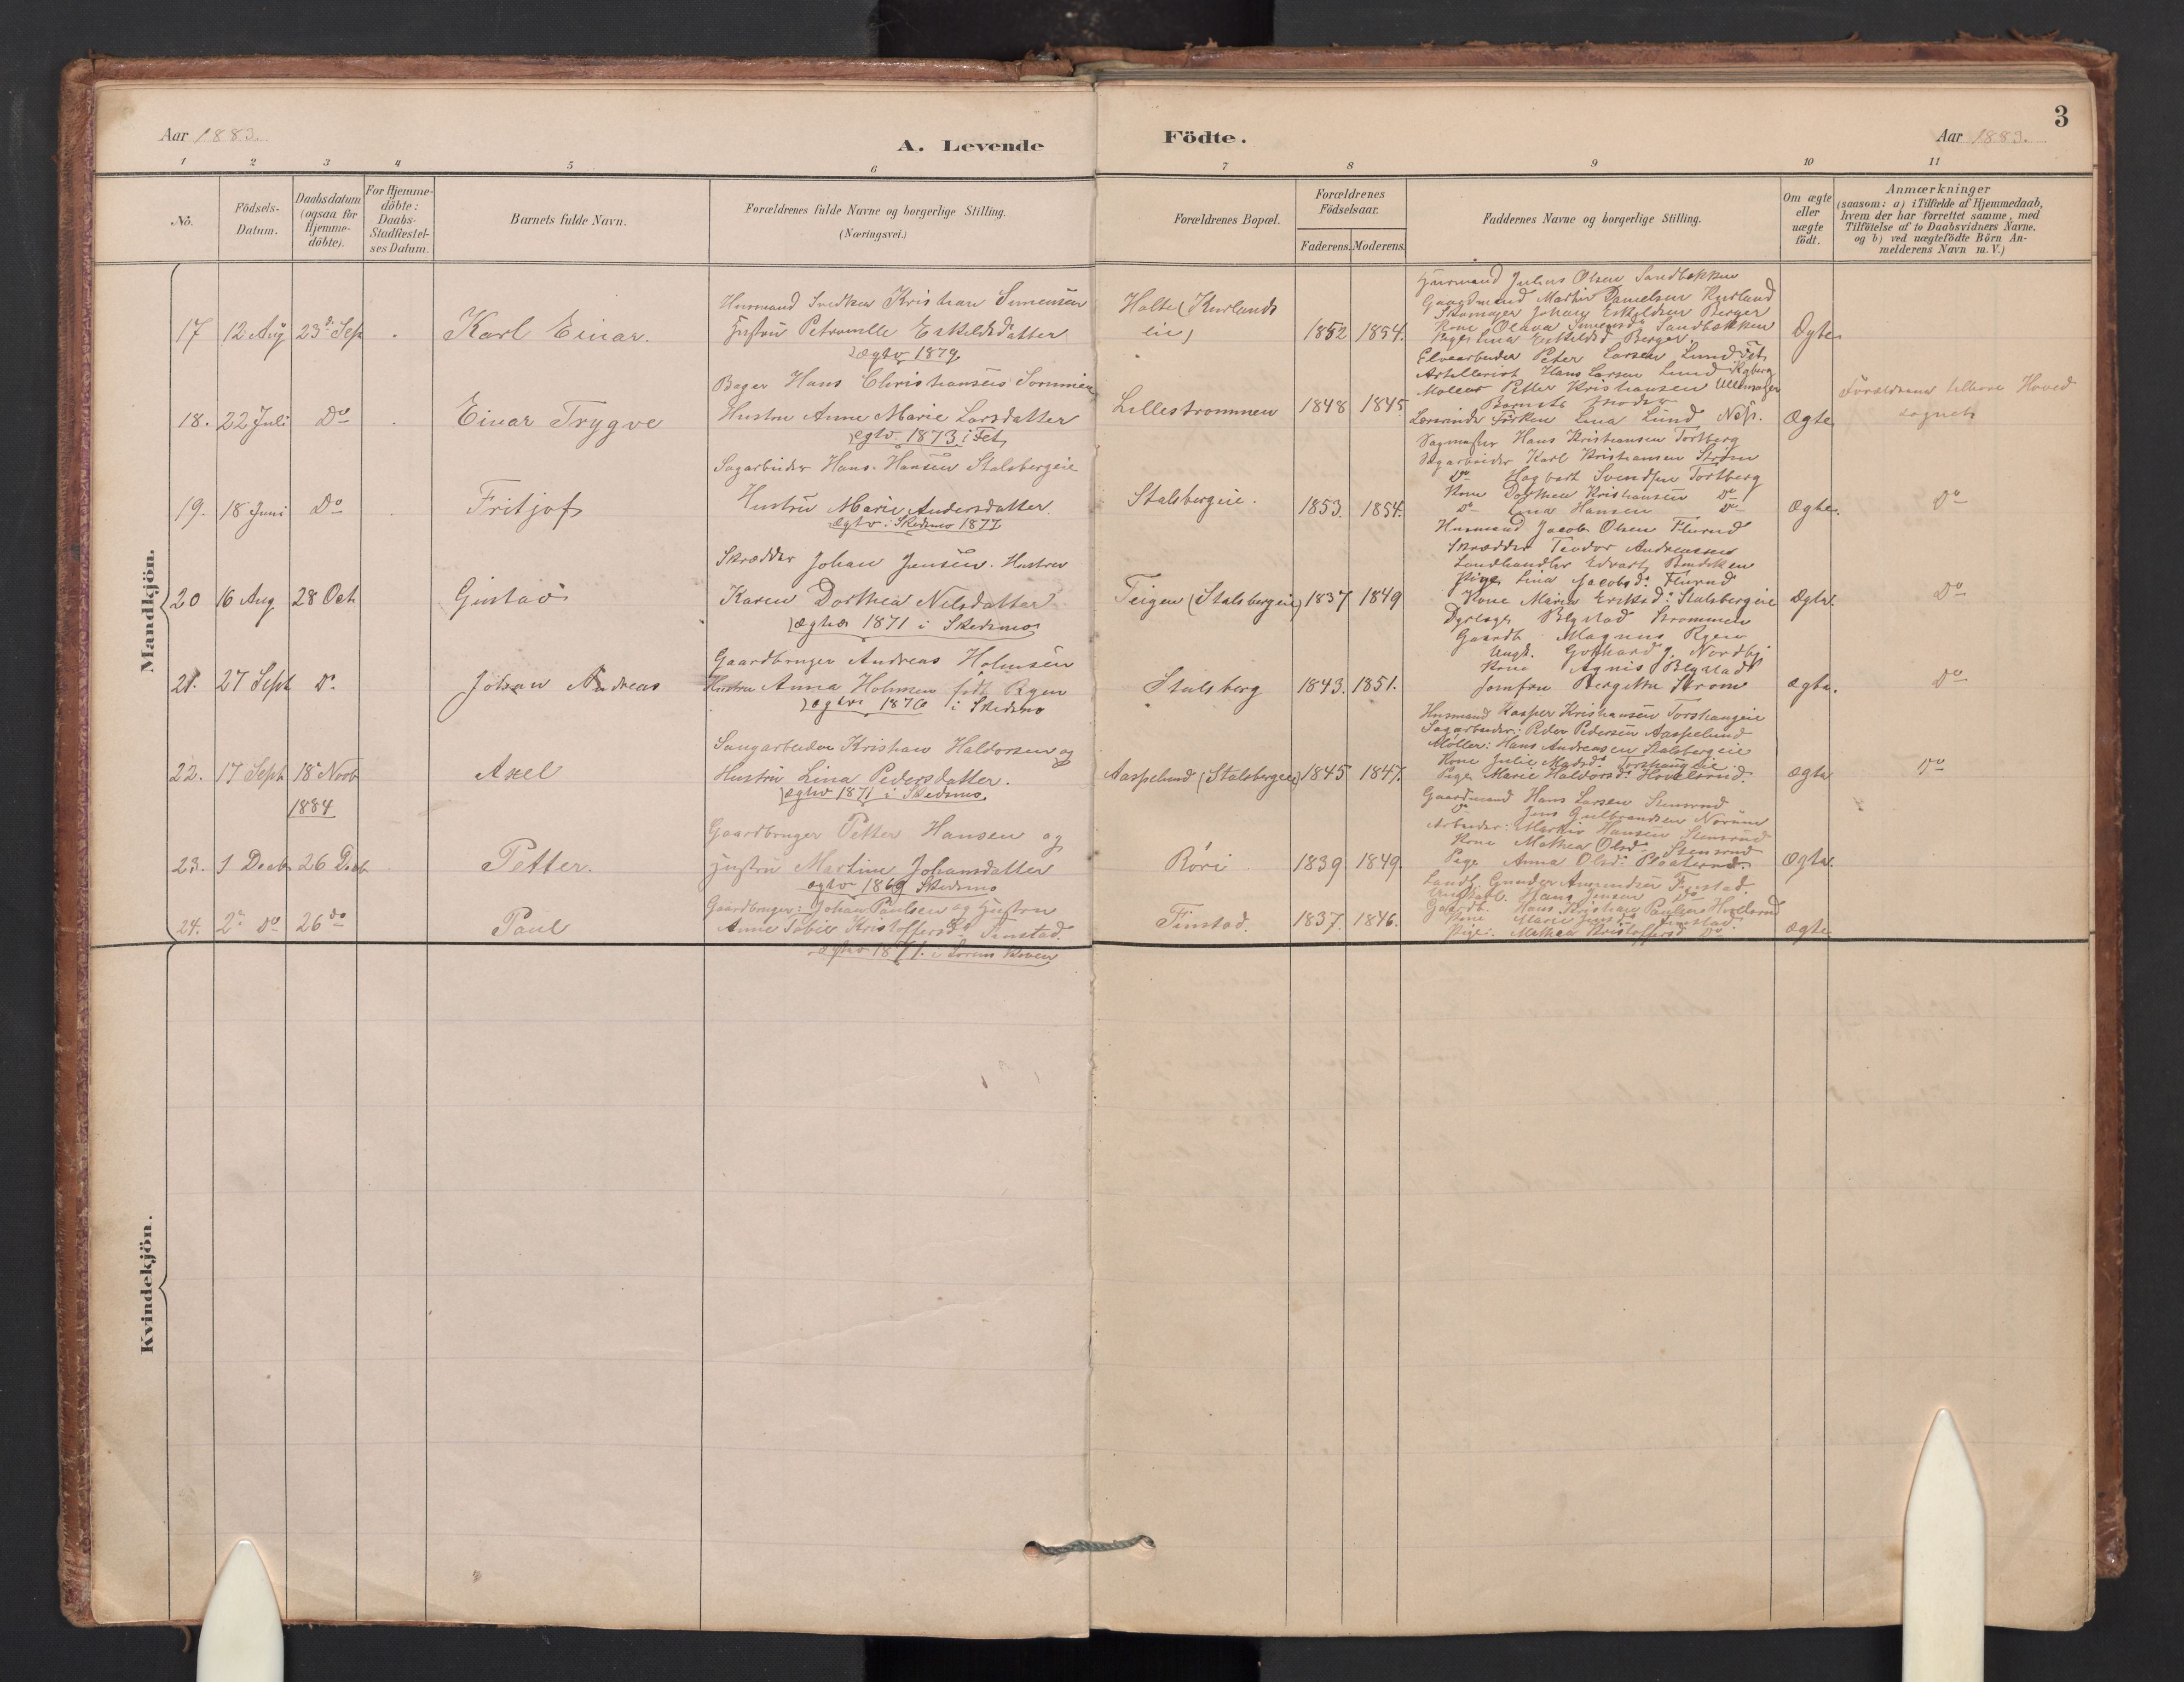 3
Aar 1883.
A. Levende Födte.
Aar 1883.
1 2 3 4 5 6 7 8 9 10 11
No.
Födsels-Datum.
Daabsdatum (ogsaa for Hjemme-döbte).
For Hjemme-döbte: Daabs-Stadfæstel-ses Datum.
Barnets fulde Navn.
Forældrenes fulde Navne og borgerlige Stilling. (Næringsvei.)
Forældrenes Bopæl.
Forældrenes Födselsaar.
Faderens. Moderens.
Faddernes Navne og borgerlige Stilling.
Om ægte eller uægte födt.
Anmærkninger (saasom: a) i Tilfælde af Hjemmedaab, hvem der har forrettet samme, med Tilföielse af to Daabsvidners Navne, og b) ved uægtefödte Börn Anmelderens Navn m. V.)
Mandkjön.
17 12 Aug 23d Sep Karl Einar.
Husmand Kristian Simensen
Hustru Petronelle Eskildsdatter
ægtev 1879
Holte (Kurlands
eie) 1852 1854.
Husmand Julius Olsen Sandbekken
Gaardmand Martin Danielsen Kurland
Skomager Johan Eskildsen Berger
Kone Olava Simensd. Sandbekken
Pige Lina Eskildsd Berger.
Ægte
18. 22 Juli Do Einar Trygve
Bager Hans Christiansen
Hustru Anne Marie Larsdatter
ægtv. 1873 i Fet
Lillestrommen 1848 1845
Elvearbeider Peter Larsen Lund Fet
Artillerist Hans Larsen Lund
Petter Kristiansen Ullensager
Barnets Moder
Lina Lund
Ægte
Forældrene tilhøre Hoved
sognet
19. 18 Juni Do Fritjof
Sagarbeider Hans Hansen Stalsbergeie
Hustru Marie Andersdatter.
ægtv. i Skedsmo 1877
Stalsbergeie. 1853. 1854.
Sagmester Hans Kristiansen Tortberg
Sagarbeider Karl Kristiansen Strøm
Do Hagbart Svendsen Tortberg
Kone Dorthea Kristiansen Do
Do Lina Hansen Do
Ægte.
Do
20 16 Aug 28 Oct Gustav
Skrædder Johan Jensen. Hustru
Karen Dorthea Nilsdatter
ægtev 1871 i Skedsmo
Teigen (Stalsbergeie) 1837 1849
Husmand Jacob Olsen Flurud
Skrædder Teodor Andreassen
Landhandler Edvart Bendiksen
Pige Lina Jacobsd. Flurud
Kone Maria Eriksd. Stalsbergeie
Ægte.
Do
21. 27 Sept Do Johan Andreas
Gaardbruger Andreas Holmsen
Hustru Anna Holmsen født Ryen
ægtev 1870 i Skedsmo
Stalsberg 1843. 1851.
Dyrlæge Blystad Strommen
Gaardb. Magnus Ryen
Ungk. Gothard J. Nordbj
Kone Agnis Blystad
Jomfru Bergitta Strøm
ægte.
Do
22. 17 Sept 18 Novb Axel
Saugarbeider Kristian Haldorsen og
Hustru Lina Pedersdatter.
ægtev 1871 i Skedsmo.
Aaspelund (Stalsbergeie) 1845 1847.
Husmand Kasper Kristiansen Torshaugeie
Sagarbeider: Peder Pedersen Aaspelund
Möller: Hans Andreasen Stalsbergeie
Kone Julie Madsd. Torshaugeie.
Pige Marie Haldorsd. Hovelsrud.
ægte
Do
1884
23. 1 Decb 26 Decb Petter.
Gaardbruger Petter Hansen og
Hustru Martine Johansdatter
ægtev 1869 Skedsmo
Röri 1839 1849.
Gaardmand Hans Larsen Stensrud
Do Jens Gulbrandsen Norum
Arbeider: Martin Hansen Stensrud
Kone Mathea Olsd. Stensrud
Pige Anna Olsd.
Ægte.
24. 2 Do 26 do Paul
Gaardbruger: Johan Paulsen og Hustru
Anne Sobie Kristoffersd. Finstad.
ægtev 1871. i
Finstad. 1837. 1846.
Landh. Gunder Amundsen Finstad.
Hans Jensen Do
Gaardb. Hans Kristian Paulsen Hovelsrud
Kone Marie Jensd. Finstad.
Pige: Mathea Kristoffersd Do
Ægte
Kvindekjön.